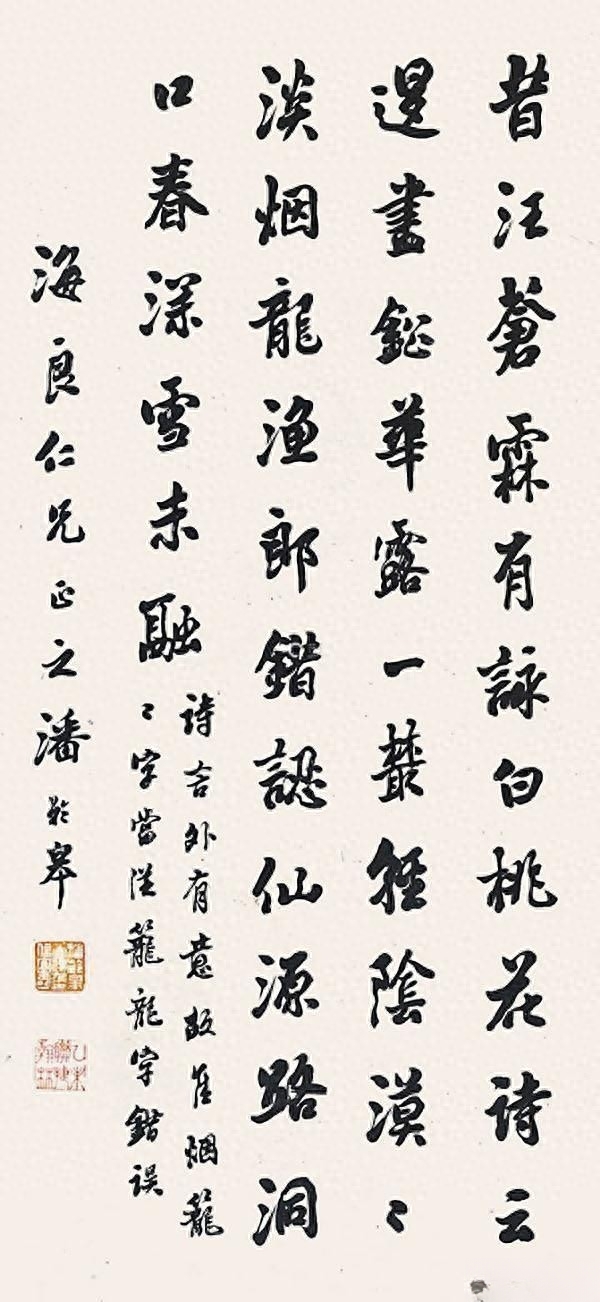 昔汪蒼霖有詠白桃花詩云
退盡鉛華露一叢輕陰漠〻
淡烟龍漁郎錯認仙源路洞
口春深雪未融
詩言外有意故佳烟籠
〻字當從籠龍字錯誤
海良仁兄正之潘齡皋